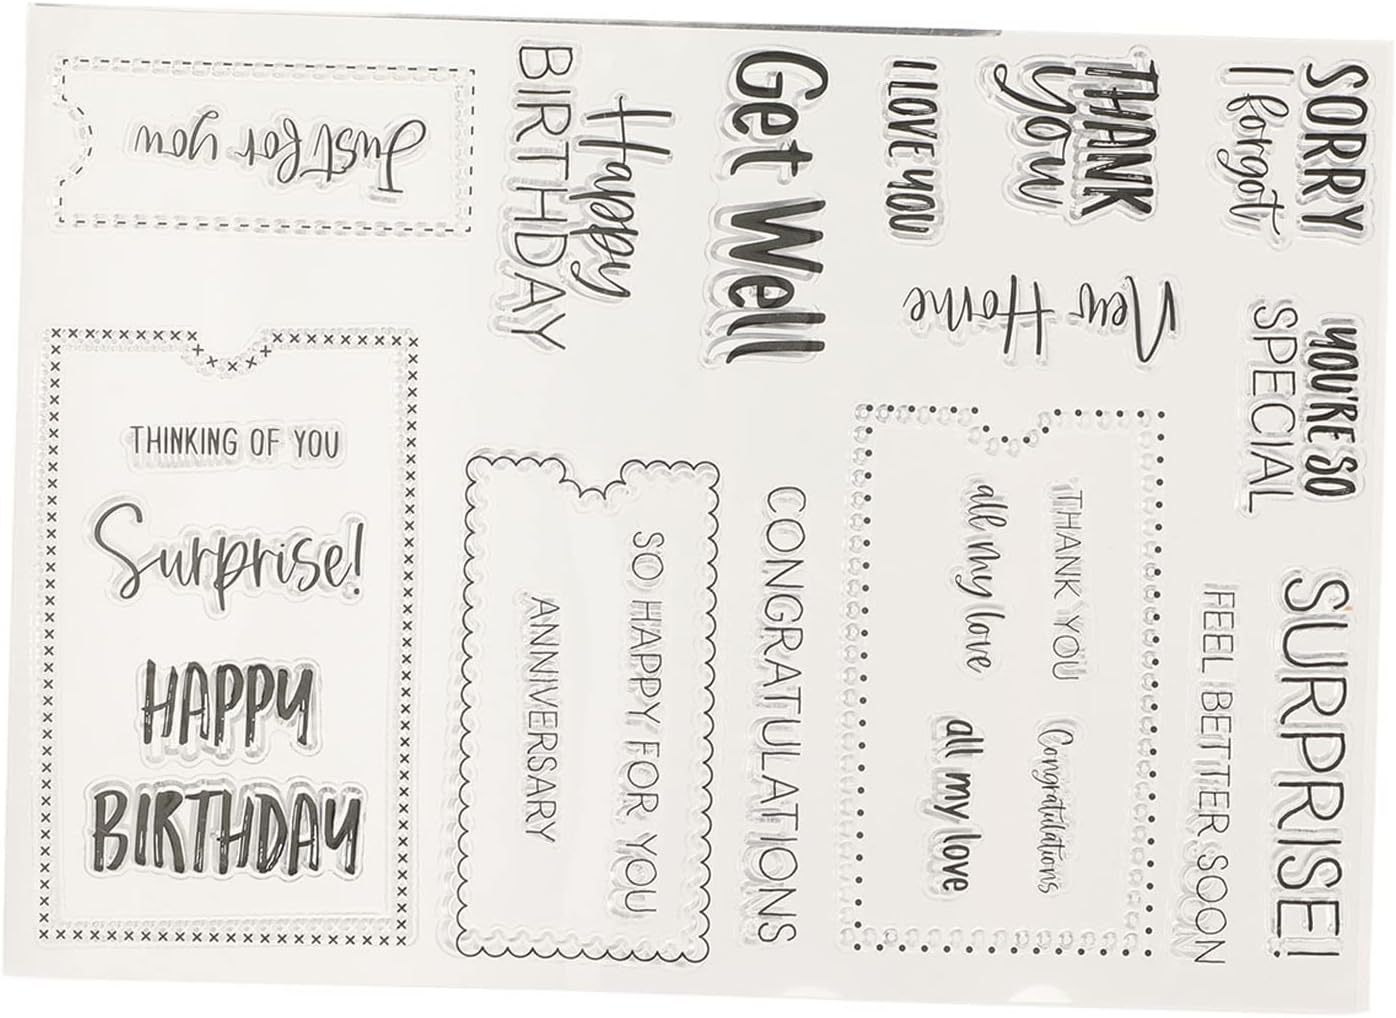 Just for you
Happy
BIRTHDAY
Get Well
I LOVE YOU
THANK
you
SORRY
I forgot
New Home
YOU'RE SO
SPECIAL
THINKING OF YOU
Surprise!
HAPPY
BIRTHDAY
SO HAPPY FOR YOU
ANNIVERSARY
CONGRATULATIONS
THANK YOU
all my love
Congratulations
all my love
FEEL BETTER SOON
SURPRISE!